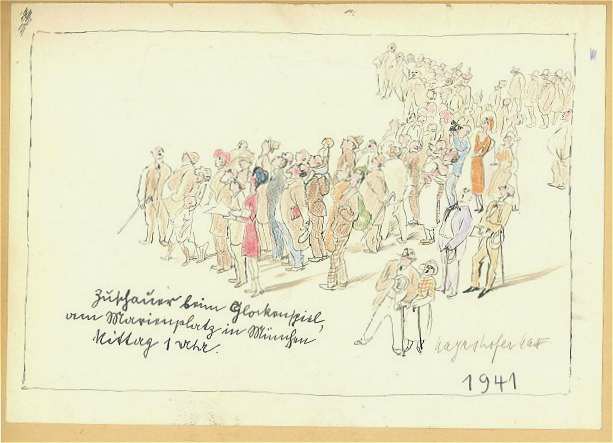 Zuschauer beim Glockenspiel,
am Marienplatz in München
Mittag 1 Uhr.
1941